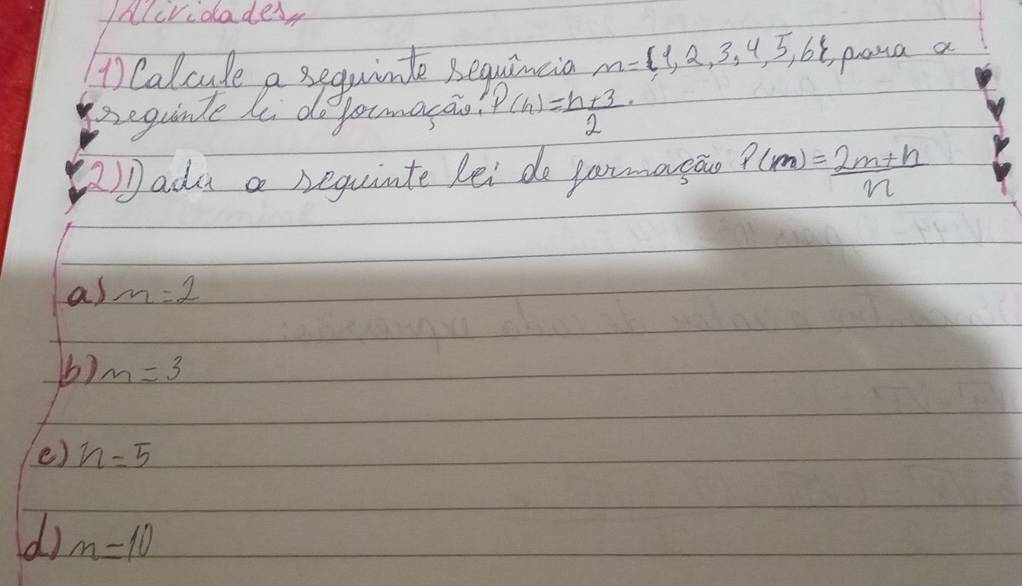 Atividades
1) Calcule a seguinte sequência n={1, 2, 3, 4, 5, 6}, para a
seguinte lei de formação: P(n)=n+3/2.
2) Dada a seguinte lei de formação P(m)=2m+n/n
a) n=2
b) n=3
c) n=5
d) n=10